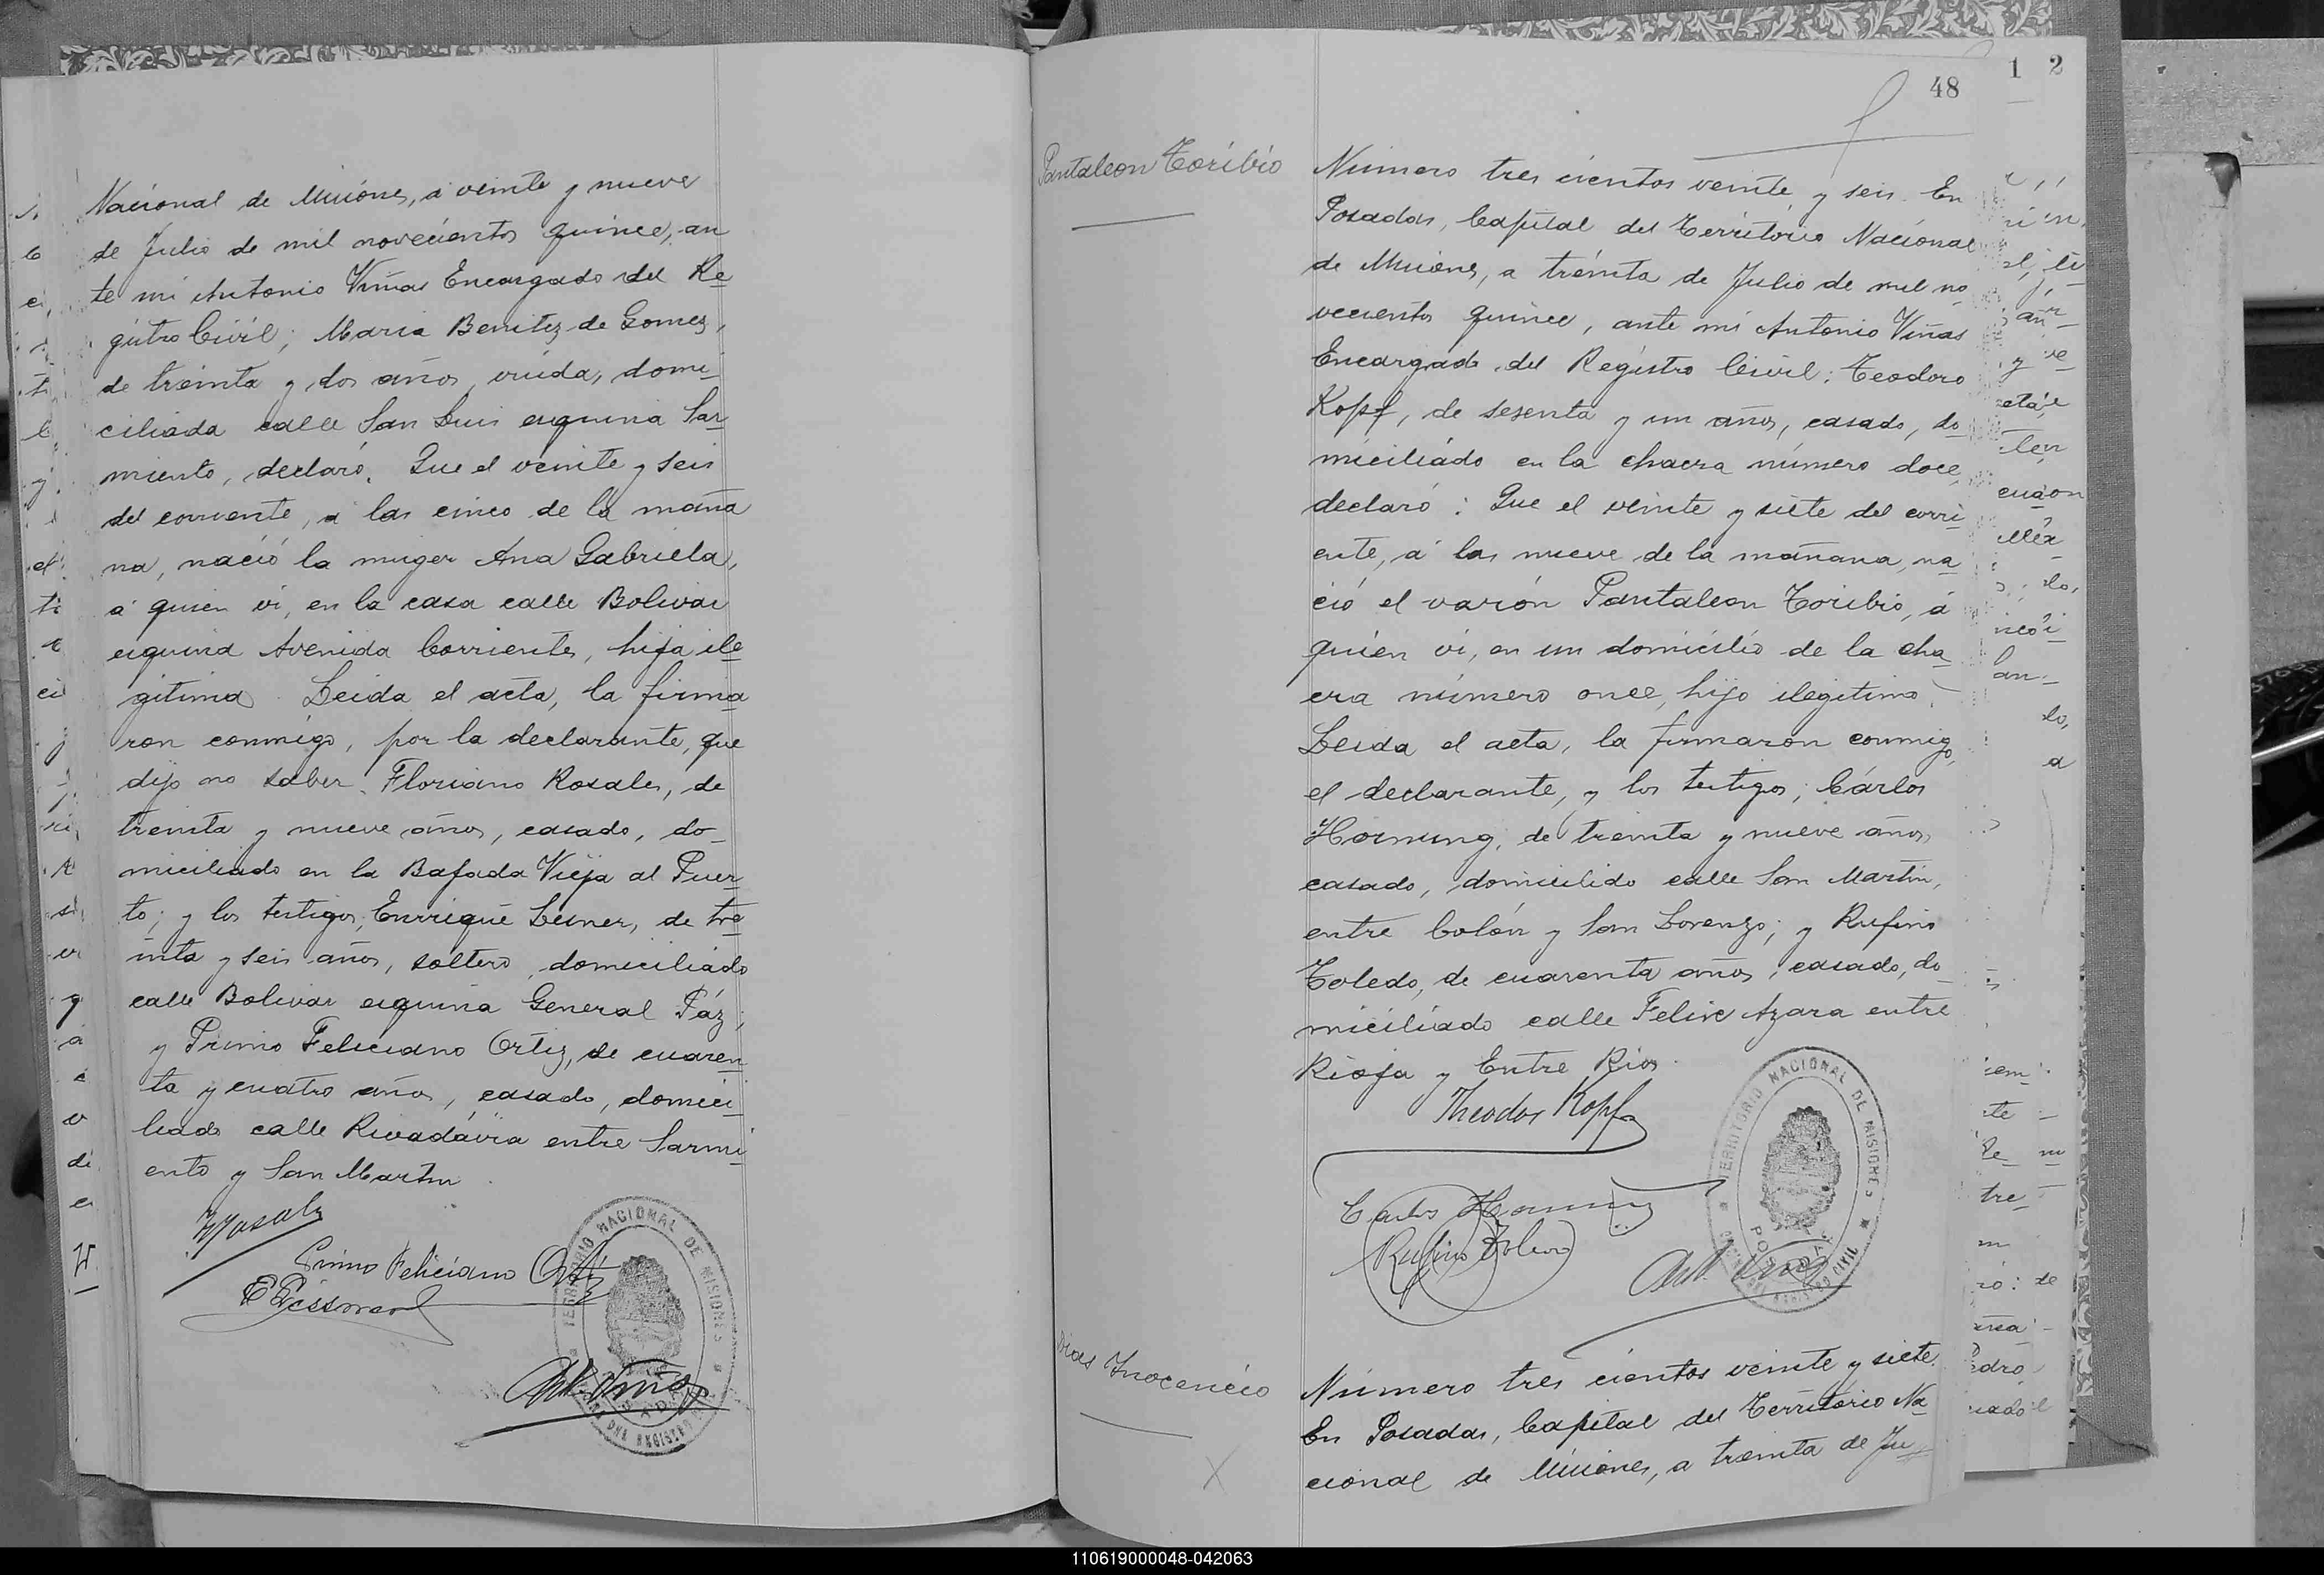 Nacional de Misiones, á veinte y nueve
de Julio de mil novecientos quince, an
te mi Antonio Viñas Encargado del Re
gistro Civil; Maria Benitez de Gomez,
de treinta y dos años, viuda, domi
ciliada calle San Luis esquina Sar
miento, declaró. Que el veinte y seis
del corriente, a las cinco de la maña
na, nació la muger Ana Gabriela,
á quien vi, en la casa calle Bolivar
esquina Avenida Corrientes, hija ile
gitima. Leida el acta, la firma
ron conmigo, por la declarante, que
dijo no saber, Floriano Rosales, de
treinta y nueve años, casado, do
miciliado en la Bajada Vieja al Puer
to; y los testigos, Enrrique Lesner, de tre
inta y seis años, soltero, domiciliado
calle Bolivar esquina General Páz;
y Primo Feliciano Ortiz, de cuaren
ta y cuatro años, casado, domici
liado calle Rivadávia entre Sarmi
ento y San Martin
Primo Feliciano Ortiz
TERRITORIO NACIONAL DE MISIONES
48
1 2
Pantaleon Toribio
Número tres cientos veinte y seis. En
Posadas, Capital del Territorio Nacional
de Misiones, a treinta de Julio de mil no
vecientos quince, ante mi Antonio Viñas
Encargado del Registro Civil: Teodoro
Kopf, de sesenta y un años, casado, do
miciliado en la chacra número doce,
declaró: Que el veinte y siete del corri
ente, á las nueve de la mañana, na
ció el varón Pantaleon Toribio, á
quien vi, en un domicilio de la cha
cra número once, hijo ilegitimo.
Leida el acta, la firmaron conmigo,
el declarante, y los testigos; Cárlos
Hornung, de treinta y nueve años,
casado, domicilido calle San Martin,
entre Colón y San Lorenzo; y Rufino
Toledo, de cuarenta años, casado, do
miciliado calle Felix Azara entre
Rioja y Entre Rios.
Theodor Kopf
Carlos Hornung
Rufino Toledo
Ant. Viñas
TERRITORIO NACIONAL DE MISIONES
Dias Inocencio
Número tres cientos veinte y siete.
En Posadas, Capital del Territorio Na
cional de Misiones, a treinta de Ju
110619000048-042063